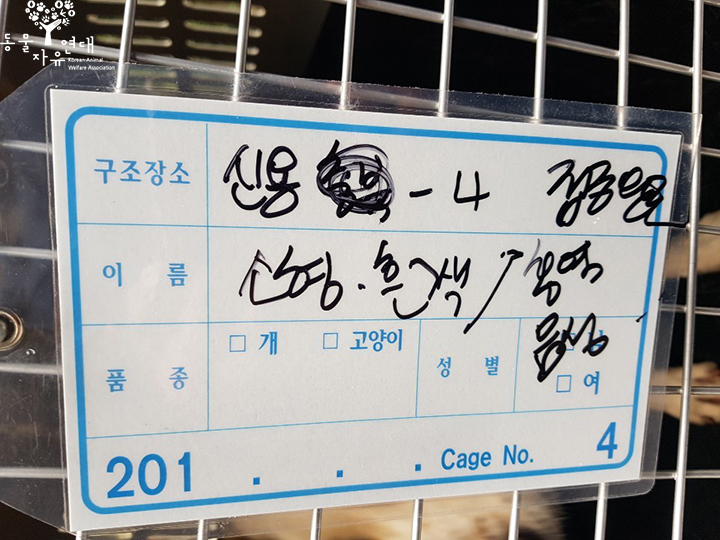 동물
자유연대
Korean Animal
Welfare Association
구조장소 신용 - 4
이 름 소형. 흰색 / 홍역
음성
품 종 □ 개 □ 고양이 성 별
□ 여
201 . . . Cage No. 4